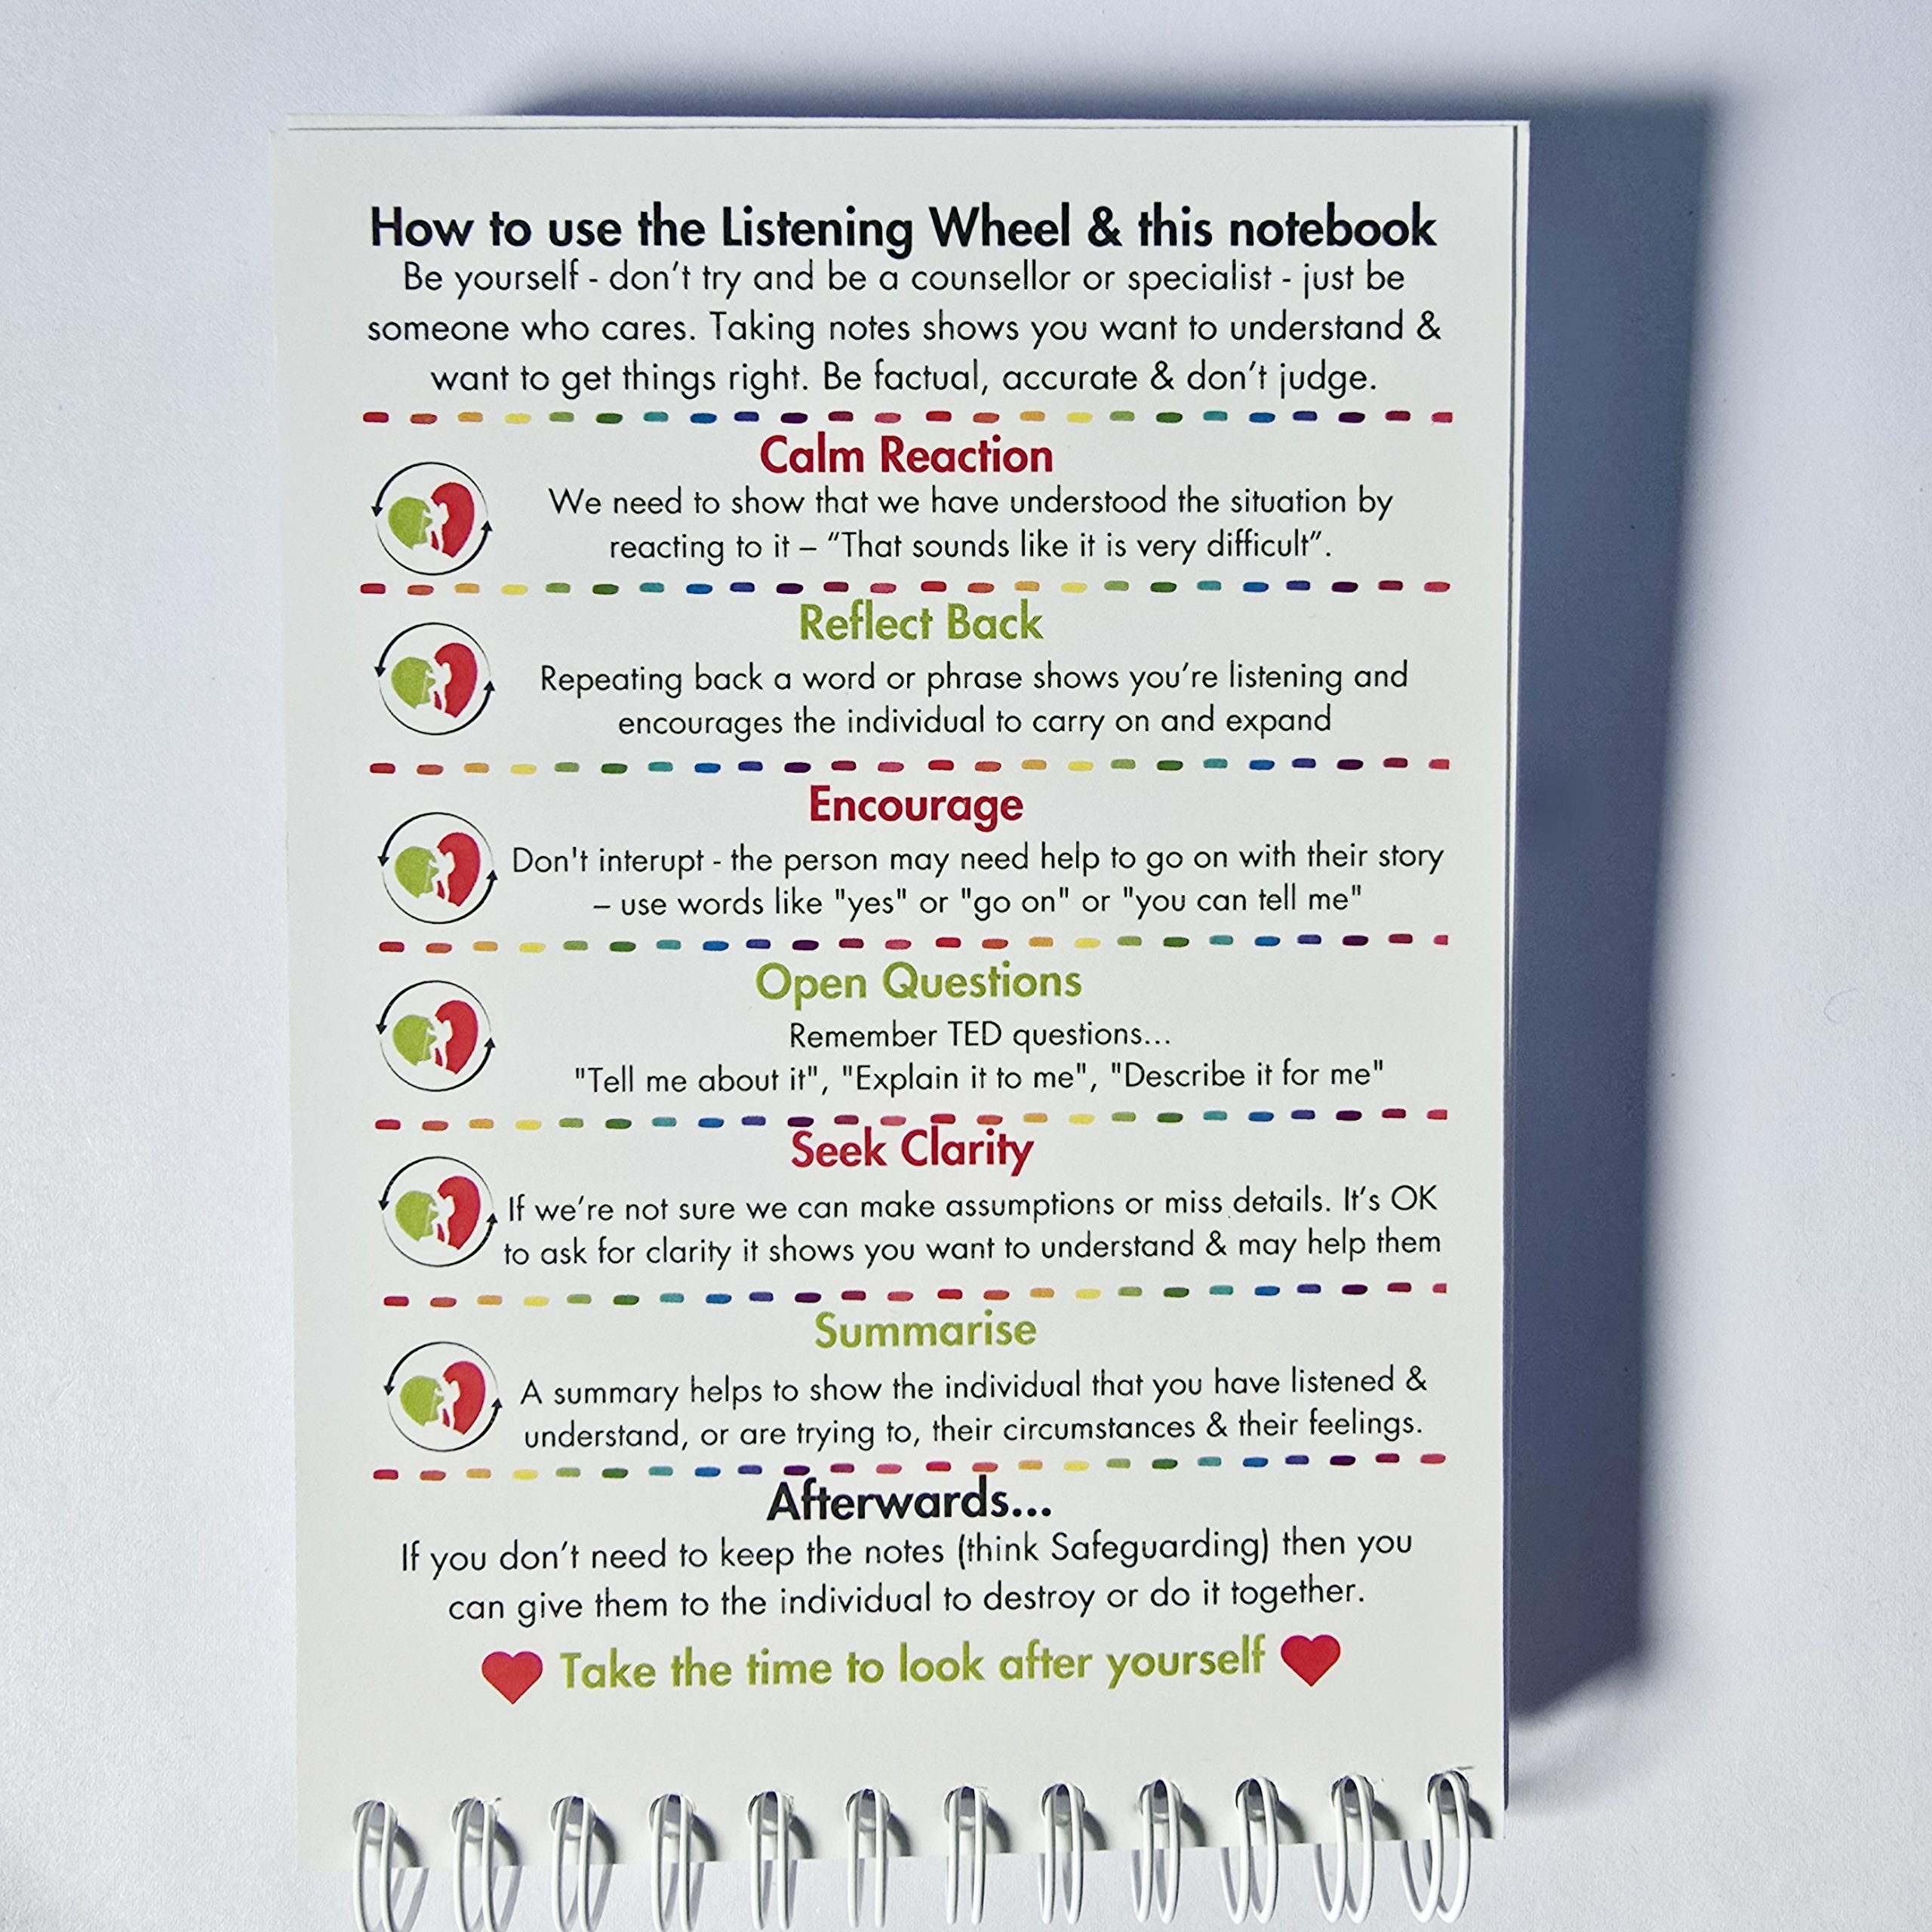 How to use the Listening Wheel & this notebook
Be yourself - don't try and be a counsellor or specialist - just be
someone who cares. Taking notes shows you want to understand &
want to get things right. Be factual, accurate & don't judge.
Calm Reaction
We need to show that we have understood the situation by
reacting to it – “That sounds like it is very difficult”.
Reflect Back
Repeating back a word or phrase shows you’re listening and
encourages the individual to carry on and expand
Encourage
Don't interupt - the person may need help to go on with their story
– use words like "yes" or "go on" or "you can tell me"
Open Questions
Remember TED questions...
"Tell me about it", "Explain it to me", "Describe it for me"
Seek Clarity
If we’re not sure we can make assumptions or miss details. It’s OK
to ask for clarity it shows you want to understand & may help them
Summarise
A summary helps to show the individual that you have listened &
understand, or are trying to, their circumstances & their feelings.
Afterwards...
If you don’t need to keep the notes (think Safeguarding) then you
can give them to the individual to destroy or do it together.
Take the time to look after yourself